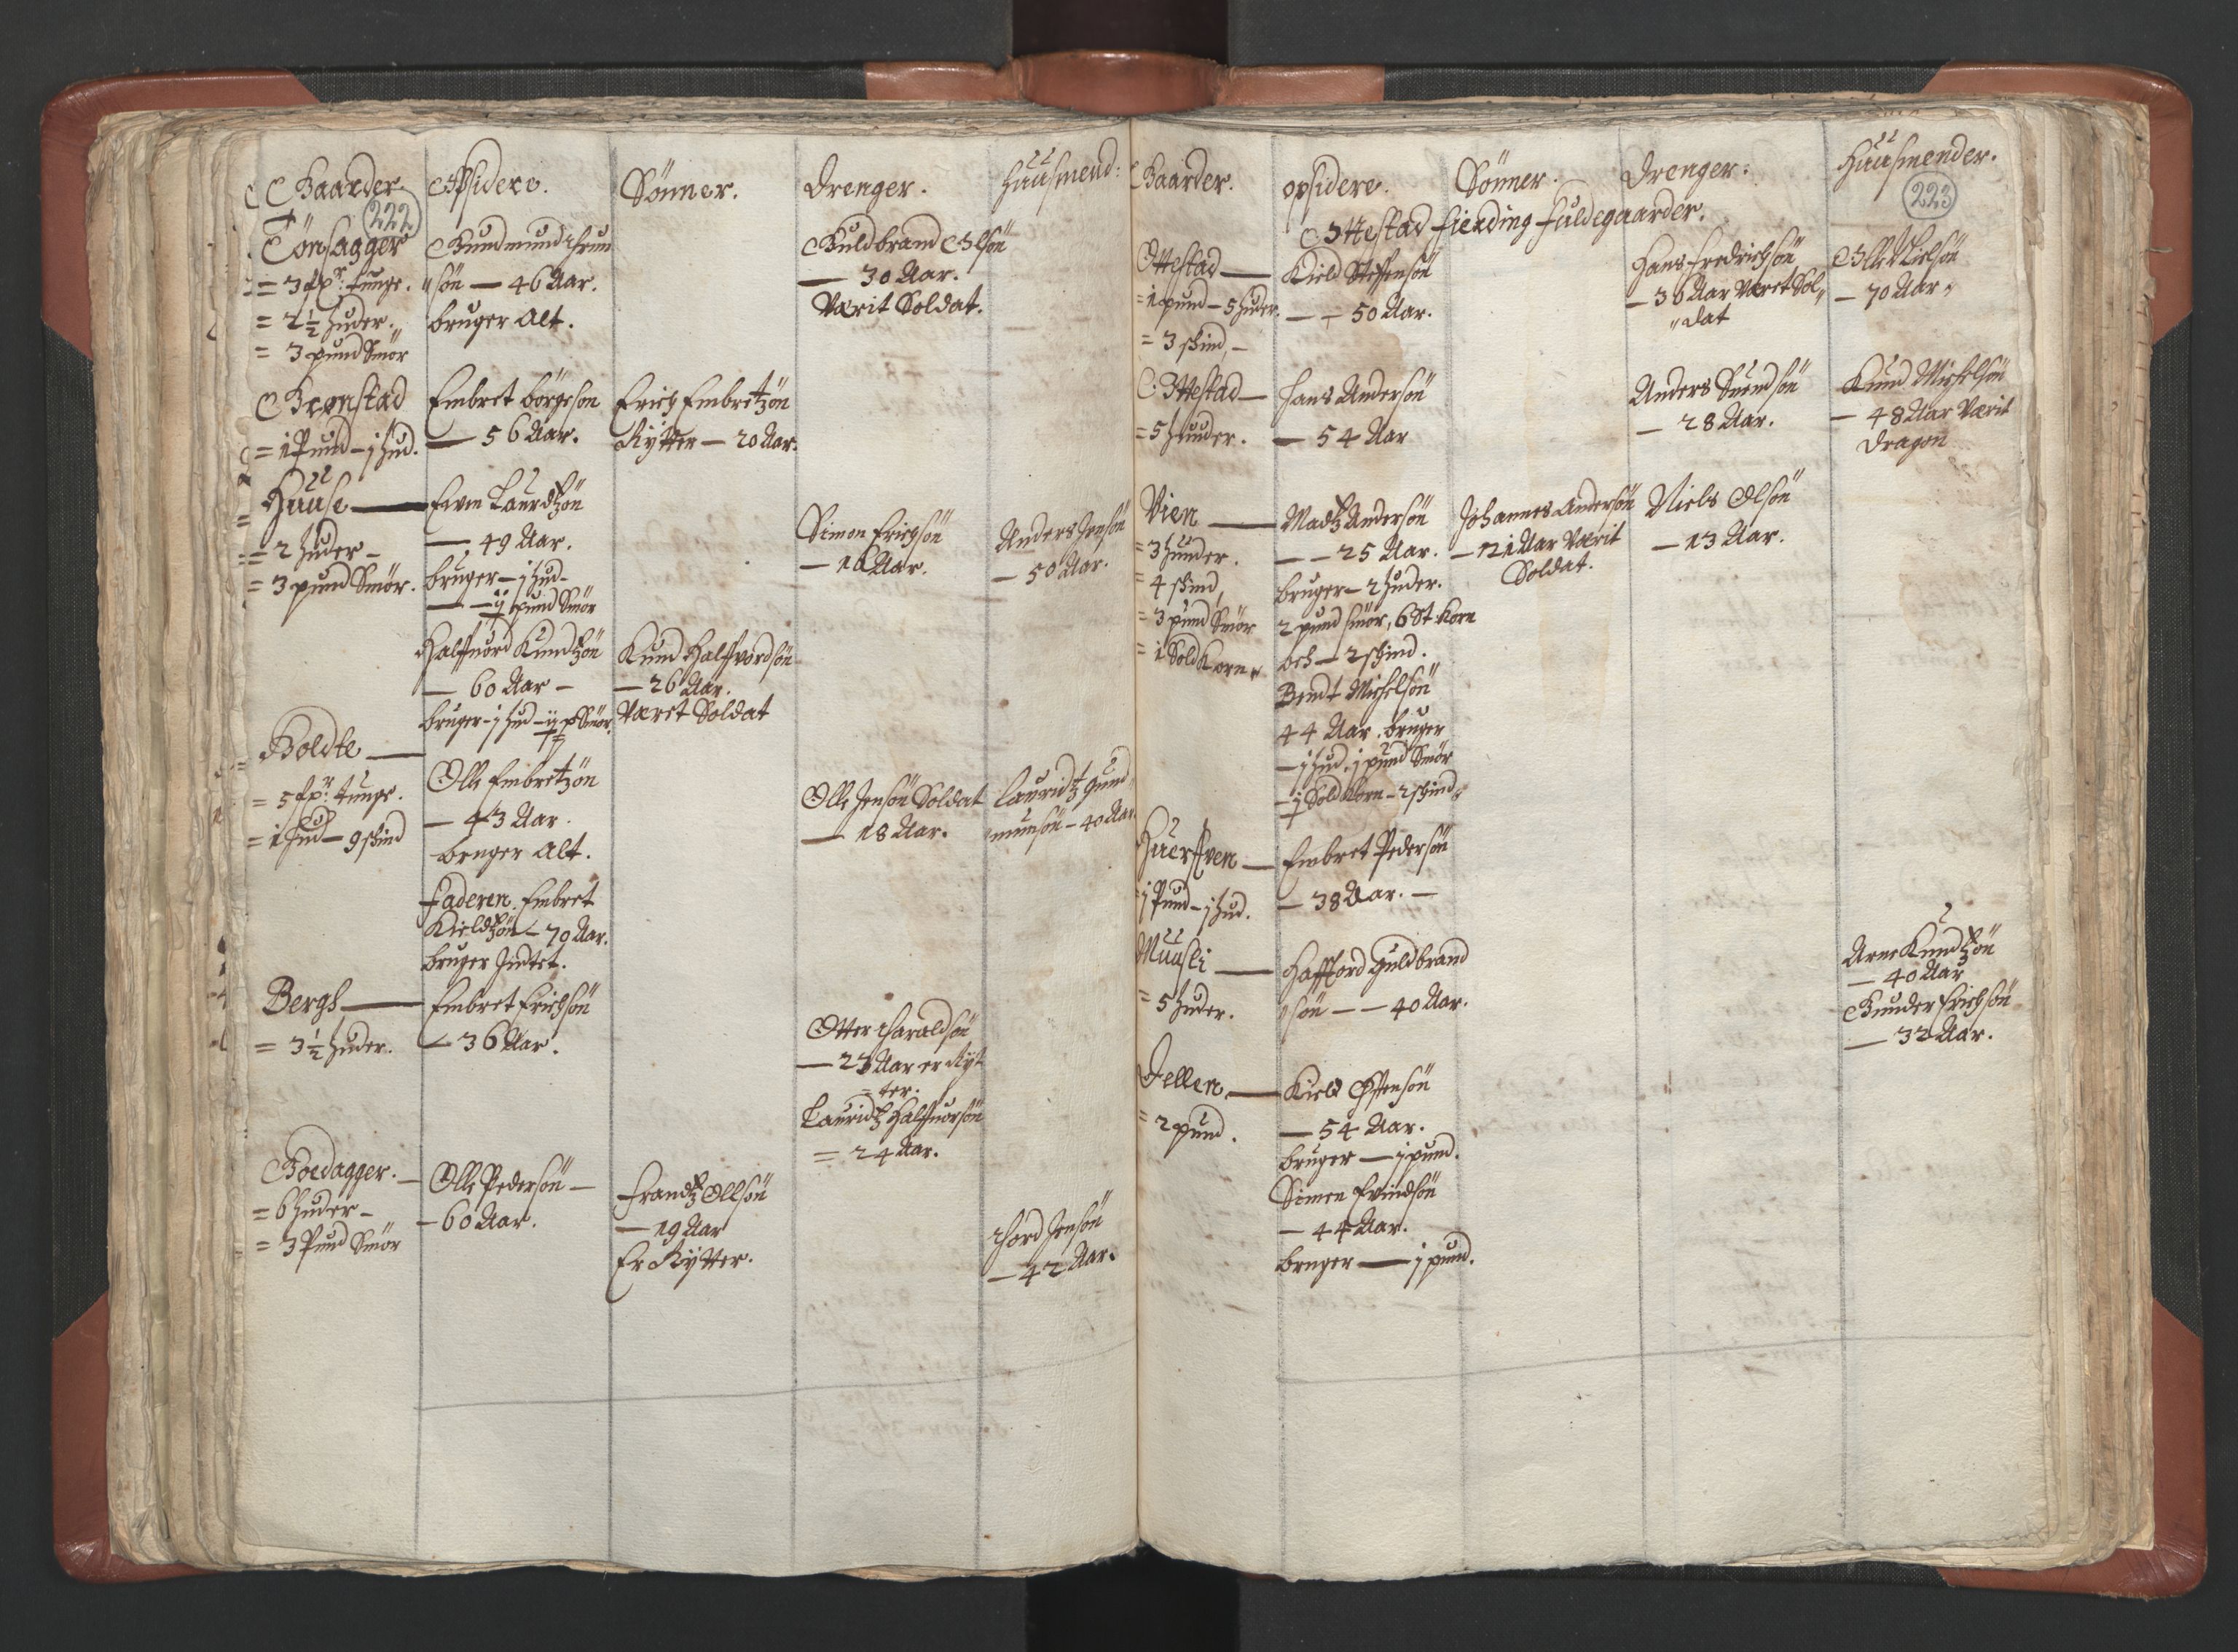 Gaarder.
Opsidere.
Sönner.
Drenger.
Huusmend:
222
Tönsagger
= 3 fpr: tunge.
= 2½ huder.
= 3 pund Smör
Gudmund
sön — 46 Aar.
bruger Alt.
Guldbrand Olsön
— 30 Aar.
Værit Soldat.
= 1 Pund – j hud.
Embret börgeson
— 56 Aar.
Erich Embretzön
Rÿtter — 20 Aar.
Huuse —
= 2 huder –
= 3 pund Smör.
Even Lauridtzön
— 49 Aar.
bruger – j hud –
— – ij pund Smör
Simon Erichsön
Anders Jensön
— 50 Aar.
Halfuord Knudtzön
— 60 Aar –
bruger – j hud – ij p Smör.
Knud Halffvordsön
— 26 Aar.
Været Soldat
Boldte —
= 5 fpr: tunge.
= 1 hud – 9 skind
Olle Embretzön
— 43 Aar.
bruger Alt.
Olle Jensön Soldat
— 18 Aar.
Lauridtz Gund
munsön – 40 Aar
faderen Embret
Kieldtzön – 70 Aar.
bruger Intet.
Bergh —
= 3½ huder.
Embret Erichsön
— 36 Aar.
Otter Haraldsön
— 23 Aar er Rÿt
= ter.
Lauridtz Halffuorsön
= 24 Aar.
Goedagger. —
= 6 huder –
= 3 Pund Smör
Olle Pedersön —
— 60 Aar.
Frandtz Ollsön
— 19 Aar
Er Rÿtter.
Thord Jensön
— 42 Aar.
Gaarder.
opsidere.
Sönner.
Drenger.
Huusmender.
223
Ottestad fierding fuldegaarder.
Ottestad —
= 1 pund – 5 huder.
= 3 skind –
Kield Steffensön
— – 50 Aar.
Hans Fredrichsön
– 36 Aar Været Sol„
„dat
Olle Nielsön
– 70 Aar„
Ottestad —
= 5 huder.
Hans Andersön
— 54 Aar
Anders Suendsön
— 28 Aar.
Knud Michelsön
— 48 Aar Værit
Dragon
Vien —
= 3 huder.
= 4 skind,
= 3 pund Smör
= 1 Sold Korn„
Madtz Andersön
— – 25 Aar.
bruger – 2 huder.
2 pund smör, 6 St Korn
och – 2 skind.
Johannes Andersön
— 21 Aar Værit
Soldat.
Niels Olsön
— 13 Aar.
Bendt Michelsön
44 Aar. bruger
– j hud, j pund Smör
– j Sold Korn – 2 skind„
= j Pund – j hud.
Embret Pedersön
— 38 Aar. —
Muusli —
= 5 huder.
Haffford Guldbrand
sön — – 40 Aar.
Arne Knudtzön
— 40 Aar
Gunder Erichsön
— 32 Aar.
Jellen —
= 2 pund.
Kield Östensön
— 54 Aar.
bruger — j pund.
Simen Evindsön
— 44 Aar.
bruger — j pund.